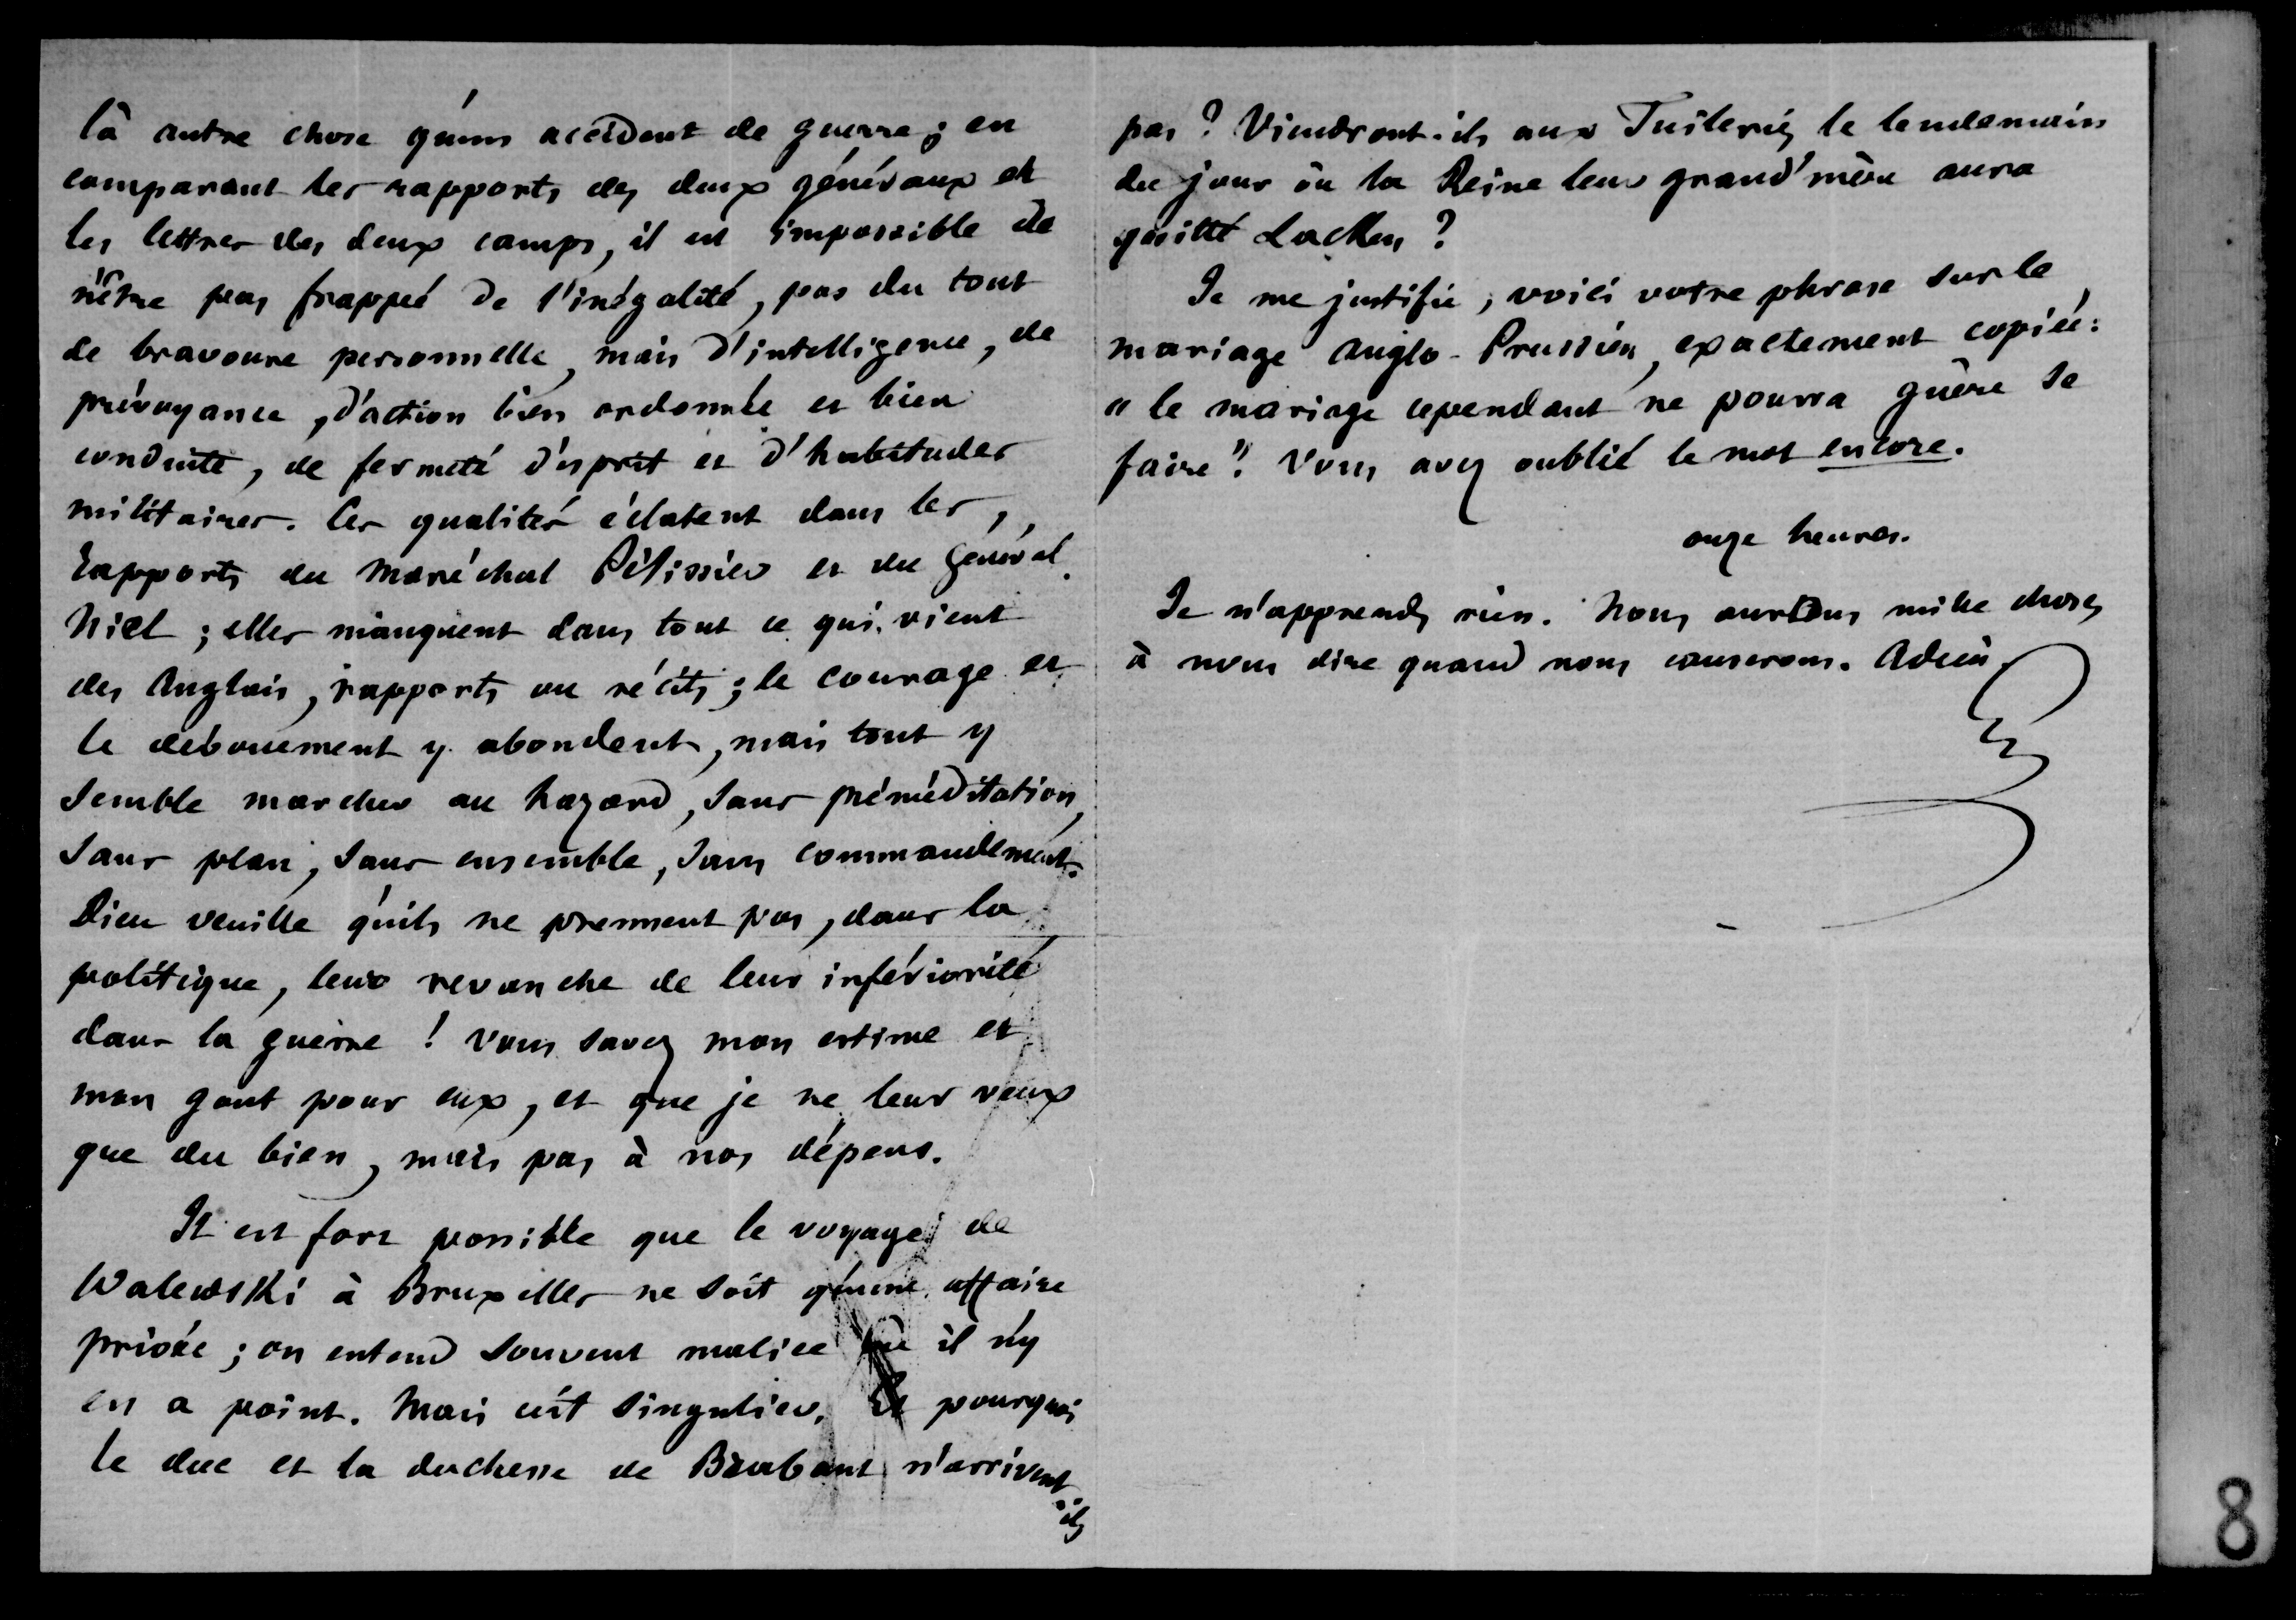 là autre chose qu'un accident de guerre ; en
comparant les rapports des deux généraux et
les lettres des deux camps, il est impossible de
n'être pas frappé de l'inégalité, pas du tout
de bravoure personnelle, mais d'intelligence, de
prévoyance, d'action bien ordonnée et bien
conduite, de fermeté d'esprit et d'habitudes
militaires. Ces qualités éclatent dans les
rapports du Maréchal Pélissier et du Général
Niel ; elles manquent dans tout ce qui vient
des Anglais, rapports ou récits ; le courage et
le dévouement y abondent, mais tout y
semble marcher au hazard, sans préméditation,
sans plan, sans ensemble, sans commandement.
Dieu veuille qu'ils ne prennent pas, dans la
politique, leur revanche de leur infériorité
dans la guerre ! Vous savez mon estime et
mon gout pour eux, et que je ne leur veux
que du bien, mais pas à nos dépens.
Il est fort possible que le voyage de
Walewski à Bruxelles ne soit qu'une affaire
privée ; on entend souvent malice où il n'y
en a point. Mais c'est singulier. Et pourquoi
le duc et la duchesse de Brabant n'arrivent-ils
pas ? Viendront-ils aux Tuileries le lendemain
du jour où la Reine leur grand'mère aura
quitté Lacken ?
Je me justifie ; voici votre phrase sur le
mariage Anglo-Prussien, exactement copiée :
"le mariage cependant ne pourra guère se
faire". Vous avez oublié le mot encore.
onze heures.
Je n'apprends rien. Nous aurons mille choses
à nous dire quand nous causerons. Adieu.
8